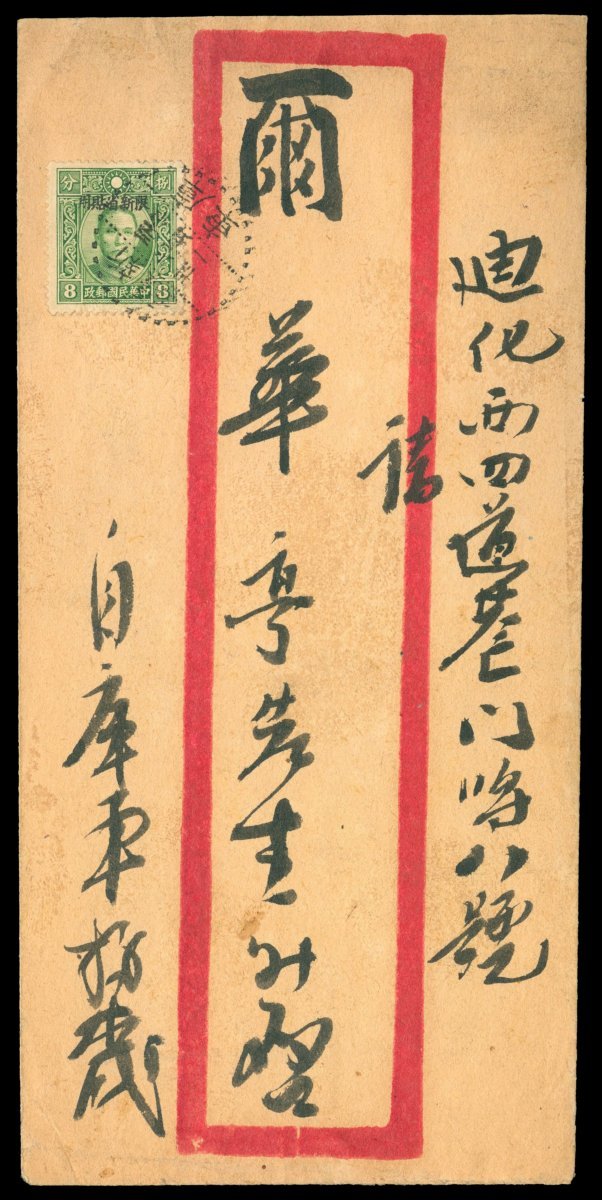 迪化西四道巷門牌八號
請
爾華亭先生升啓
自庫車
捌分
限新省貼用
中華民國郵政
8 8